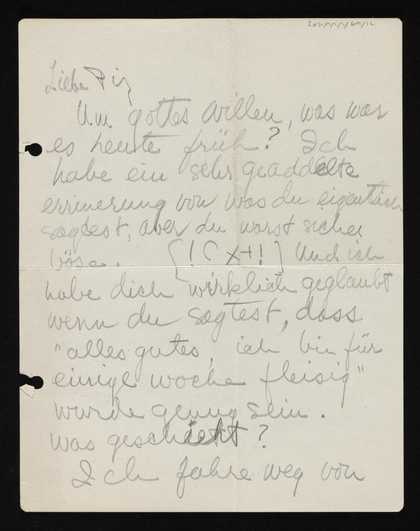 Liebe Piz
Um gottes willen, was war
es heute früh? Ich
habe ein sehr
errinerung von was du eigentlich
sagtest, aber du warst sicher
böse. (!C x+!) Und ich
habe dich wirklich geglaubt
wenn du sagtest, dass
"alles gutes, ich bin für
einige woche fleisig"
wurde genug sein.
was geschieht?
Ich fahre weg von